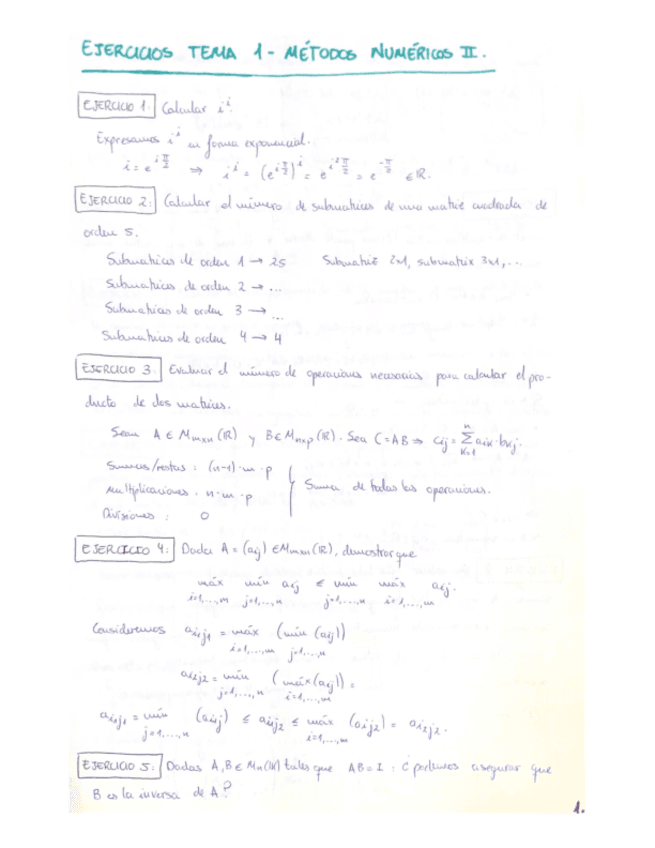 EJERCICIOS TEMA 1 - MÉTODOS NUMÉRICOS II.
EJERCICIO 1. Calcular i^i.
Expresamos i^i en forma exponencial.
i = e^{i π/2} ⇒ i^i = (e^{i π/2})^i = e^{i² π/2} = e^{-π/2} ∈ ℝ.
EJERCICIO 2: Calcular el número de submatrices de una matriz cuadrada de
orden 5.
Submatrices de orden 1 → 25 Submatriz 2x1, submatrix 3x1, ...
Submatrices de orden 2 → ...
Submatrices de orden 3 → ...
Submatrices de orden 4 → 4
EJERCICIO 3. Evaluar el número de operaciones necesarias para calcular el pro-
ducto de dos matrices.
Sean A ∈ M_{mxn}(ℝ) y B ∈ M_{nxp}(ℝ). Sea C = AB ⇒ c_{ij} = Σ_{k=1}^{n} a_{ik}·b_{kj}.
Sumas/restas : (n-1)·m·p
Multiplicaciones : n·m·p } Suma de todas las operaciones.
Divisiones : 0
EJERCICIO 4: Dada A = (a_{ij}) ∈ M_{mxn}(ℝ), demostrar que
máx mín a_{ij} ≤ mín máx a_{ij}.
i=1,...,m j=1,...,n j=1,...,n i=1,...,m
Consideramos a_{i1j1} = máx (mín (a_{ij}))
i=1,...,m j=1,...,n
a_{i2j2} = mín (máx(a_{ij})) =
j=1,...,n i=1,...,m
a_{i1j1} = mín (a_{i1j}) ≤ a_{i1j2} ≤ máx (a_{ij2}) = a_{i2j2}.
j=1,...,n i=1,...,m
EJERCICIO 5: Dadas A, B ∈ M_n(𝕂) tales que AB = I : ¿podemos asegurar que
B es la inversa de A?
1.